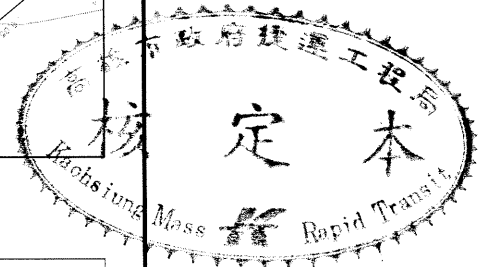 高雄市政府捷運工程局
核定本
Kaohsiung Mass Rapid Transit